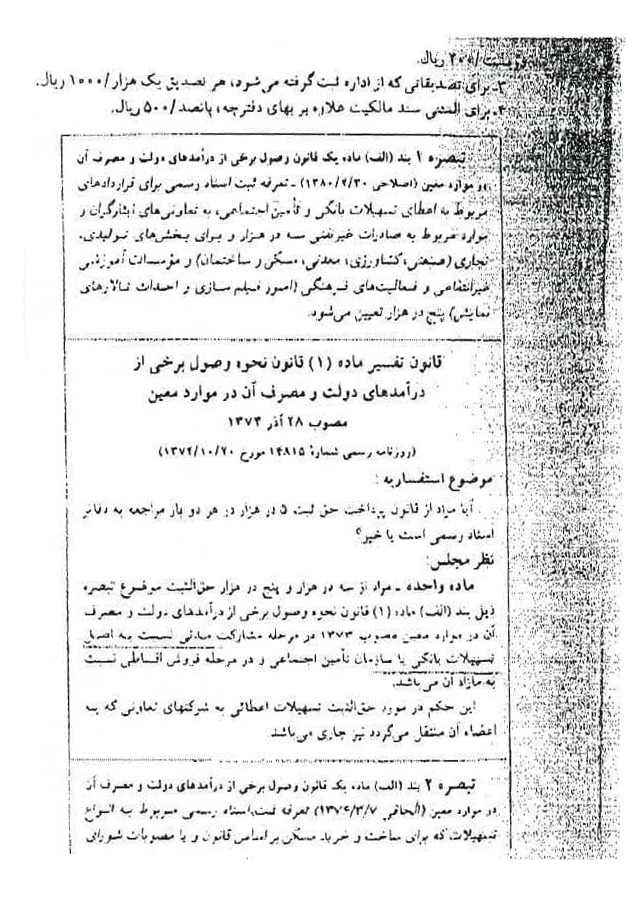 دویست /۲۰۰ ریال.
۳ـ برای تصدیقاتی که از اداره ثبت گرفته می‌شود، هر تصدیق یک هزار/۱۰۰۰ ریال.
۴ـ برای المثنی سند مالکیت علاوه بر بهای دفترچه، پانصد/۵۰۰ ریال.
تبصره ۱ بند (الف) ماده یک قانون وصول برخی از درآمدهای دولت و مصرف آن
در موارد معین (اصلاحی ۱۳۸۰/۴/۳۰) ـ تعرفه ثبت اسناد رسمی برای قراردادهای
مربوط به اعطای تسهیلات بانکی و تأمین اجتماعی، به تعاونی‌های ایثارگران و
موارد مربوط به صادرات غیرنفتی سه در هزار و برای بخش‌های تولیدی،
تجاری (صنعتی، کشاورزی، معدنی، مسکن و ساختمان) و مؤسسات آموزشی
غیرانتفاعی و فعالیت‌های فرهنگی (امور فیلم سازی و احداث تالارهای
نمایش) پنج در هزار تعیین می‌شود.
قانون تفسیر ماده (۱) قانون نحوه وصول برخی از
درآمدهای دولت و مصرف آن در موارد معین
مصوب ۲۸ آذر ۱۳۷۴
(روزنامه رسمی شماره ۱۴۸۱۵ مورخ
موضوع استفساریه :
آیا مراد از قانون پرداخت حق ثبت ۵ در هزار در هر دو بار مراجعه به دفاتر
اسناد رسمی است یا خیر؟
نظر مجلس:
ماده واحده ـ مراد از سه در هزار و پنج در هزار حق‌الثبت موضوع تبصره
ذیل بند (الف) ماده (۱) قانون نحوه وصول برخی از درآمدهای دولت و مصرف
آن در موارد معین مصوب ۱۳۷۳ در مرحله مشارکت مدنی نسبت به اصل
تسهیلات بانکی یا سازمان تأمین اجتماعی و در مرحله فروش اقساطی نسبت
به مازاد آن می‌باشد.
این حکم در مورد حق‌الثبت تسهیلات اعطائی به شرکتهای تعاونی که به
اعضاء آن منتقل می‌گردد نیز جاری می‌باشد.
تبصره ۲ بند (الف) ماده یک قانون وصول برخی از درآمدهای دولت و مصرف آن
در موارد معین (الحاقی ۱۳۷۶/۳/۷) تعرفه ثبت اسناد رسمی مربوط به انواع
تسهیلات که برای ساخت و خرید مسکن بر اساس قانون و یا مصوبات شورای